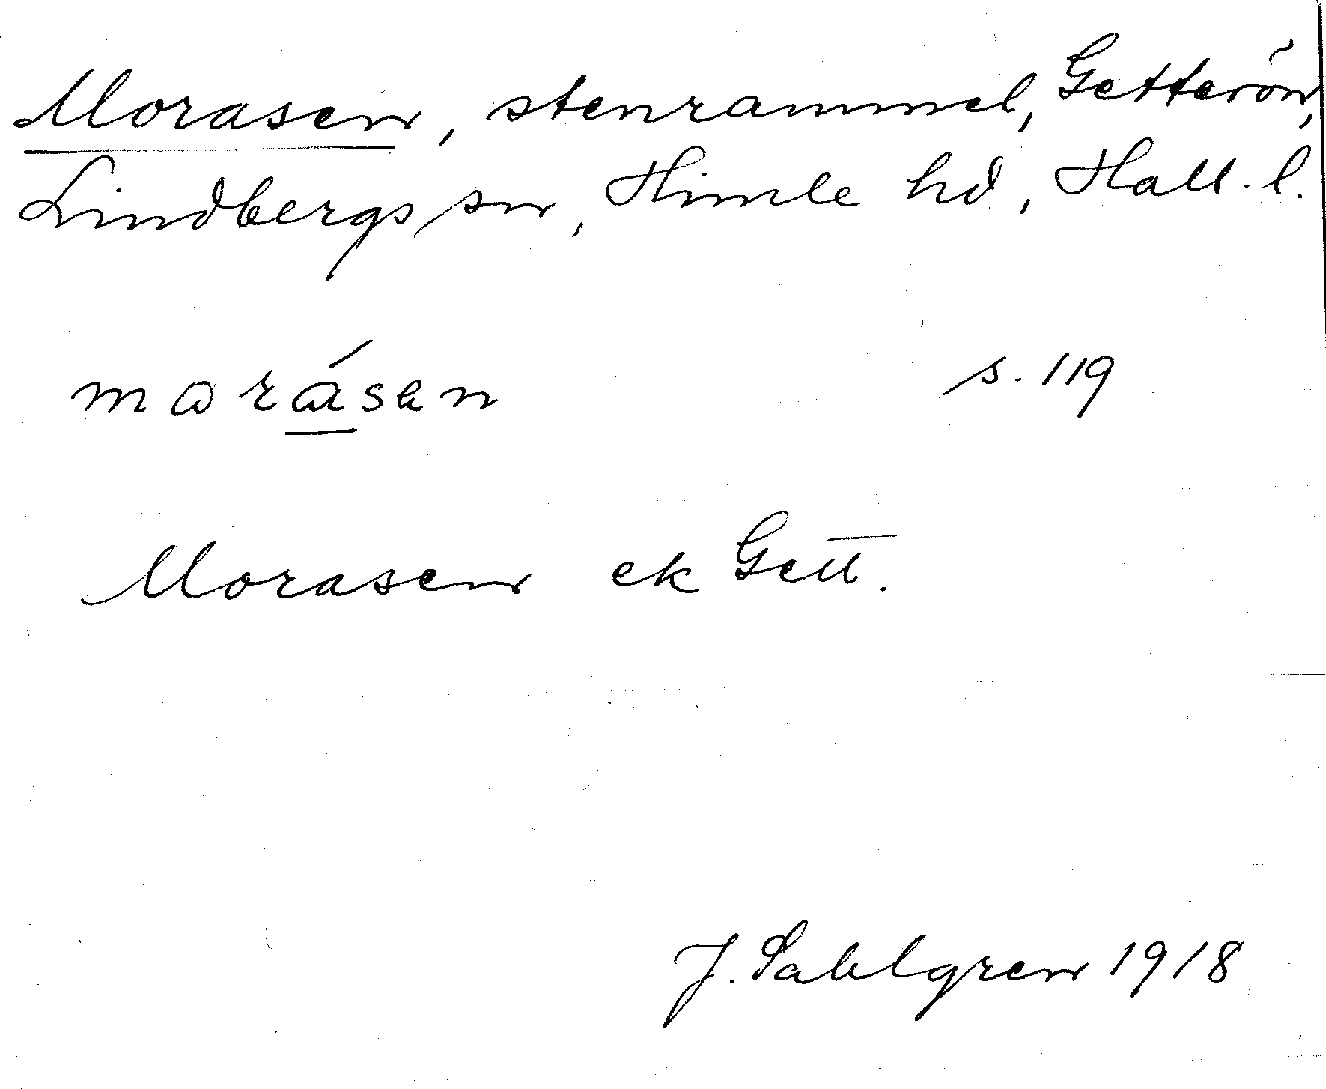 Morasen, stenrammel, Getterön,
Lindbergs sn, Himle hd, Hall. l.
marásen s. 119
Morasen ek Gett.
J. Sahlgren 1918